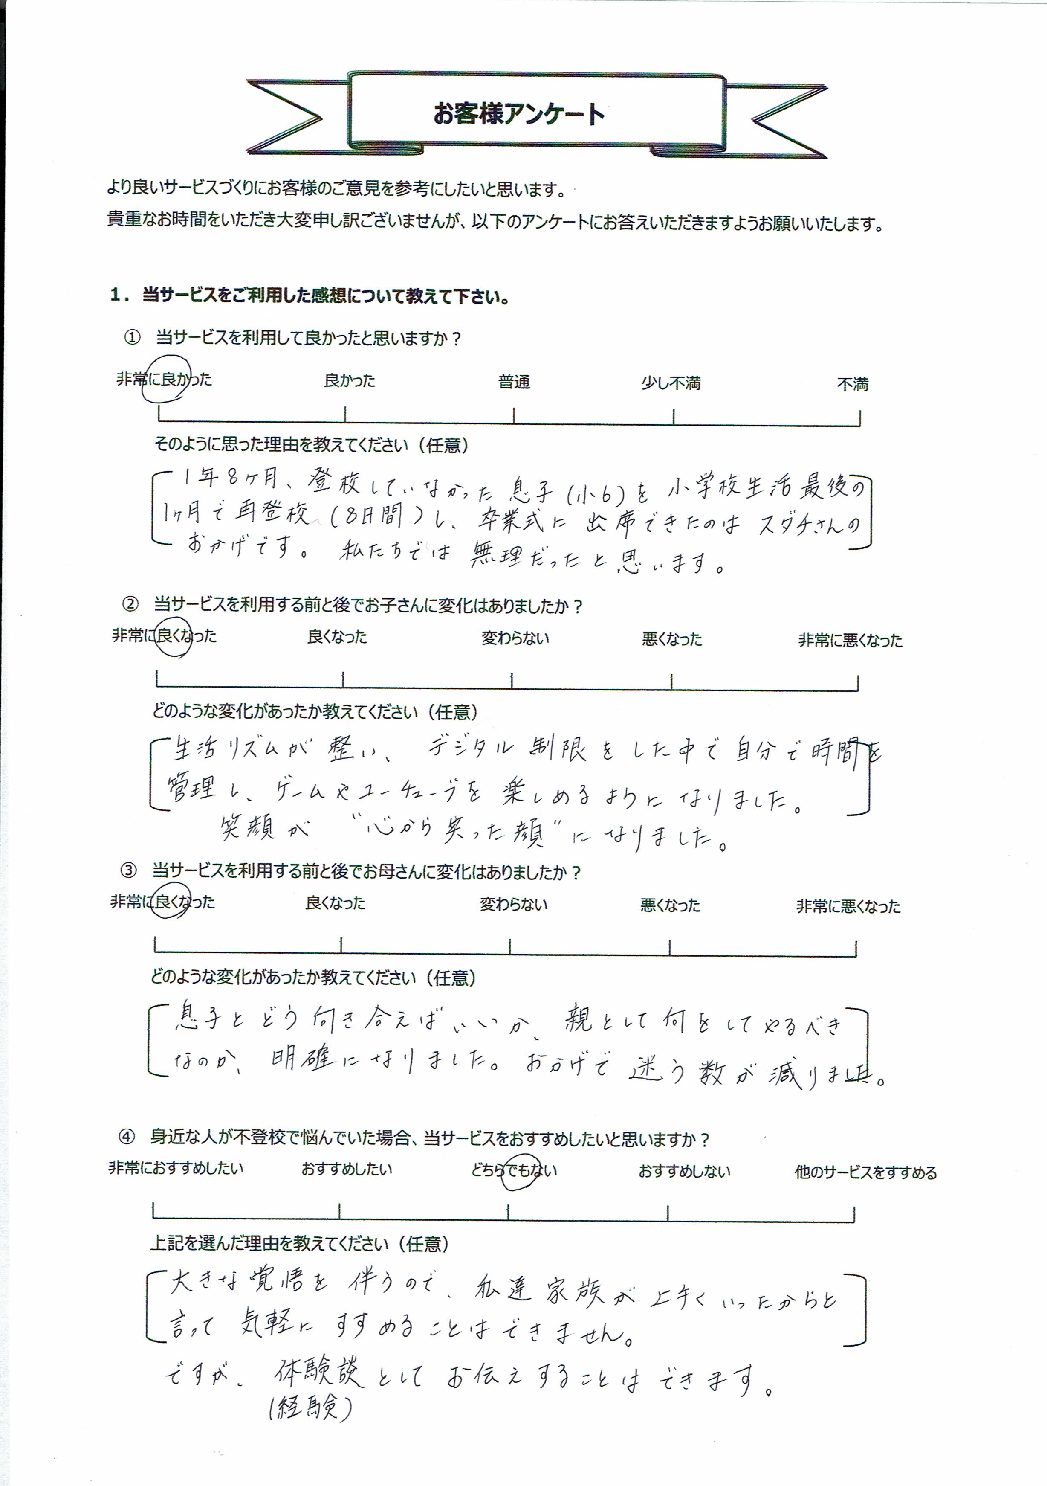 お客様アンケート
より良いサービスづくりにお客様のご意見を参考にしたいと思います。
貴重なお時間をいただき大変申し訳ございませんが、以下のアンケートにお答えいただきますようお願いいたします。
１．当サービスをご利用した感想について教えて下さい。
① 当サービスを利用して良かったと思いますか？
非常に良かった 良かった 普通 少し不満 不満
そのように思った理由を教えてください（任意）
1年8ヶ月、登校していなかった息子(小6)を小学校生活最後の
1ヶ月で再登校(8日間)し、卒業式に出席できたのはスダチさんの
おかげです。私たちでは無理だったと思います。
② 当サービスを利用する前と後でお子さんに変化はありましたか？
非常に良くなった 良くなった 変わらない 悪くなった 非常に悪くなった
どのような変化があったか教えてください（任意）
生活リズムが整い、デジタル制限をした中で自分で時間を
管理し、ゲームやユーチューブを楽しめるようになりました。
笑顔が"心から笑った顔"になりました。
③ 当サービスを利用する前と後でお母さんに変化はありましたか？
非常に良くなった 良くなった 変わらない 悪くなった 非常に悪くなった
どのような変化があったか教えてください（任意）
息子とどう向き合えばいいか、親として何をしてやるべき
なのか、明確になりました。おかげで迷う数が減りました。
④ 身近な人が不登校で悩んでいた場合、当サービスをおすすめしたいと思いますか？
非常におすすめしたい おすすめしたい どちらでもない おすすめしない 他のサービスをすすめる
上記を選んだ理由を教えてください（任意）
大きな覚悟を伴うので、私達家族が上手くいったからと
言って気軽にすすめることはできません。
ですが、体験談としてお伝えすることはできます。
(経験)